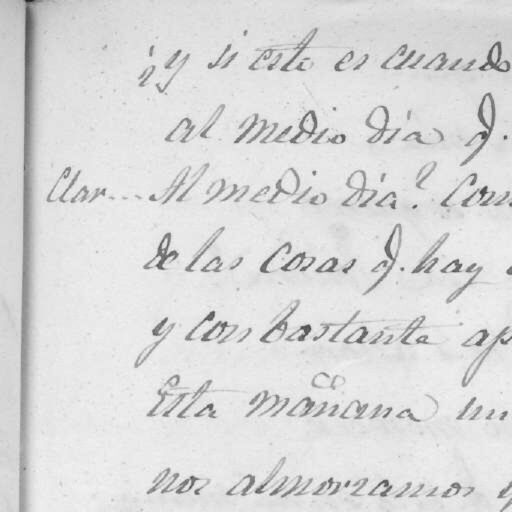 ¿y si este es cuando
al medio dia q.
Clar... Al medio dia? Com
de las cosas q. hay
y con bastante ap
Esta mañana un
nos almorzamos